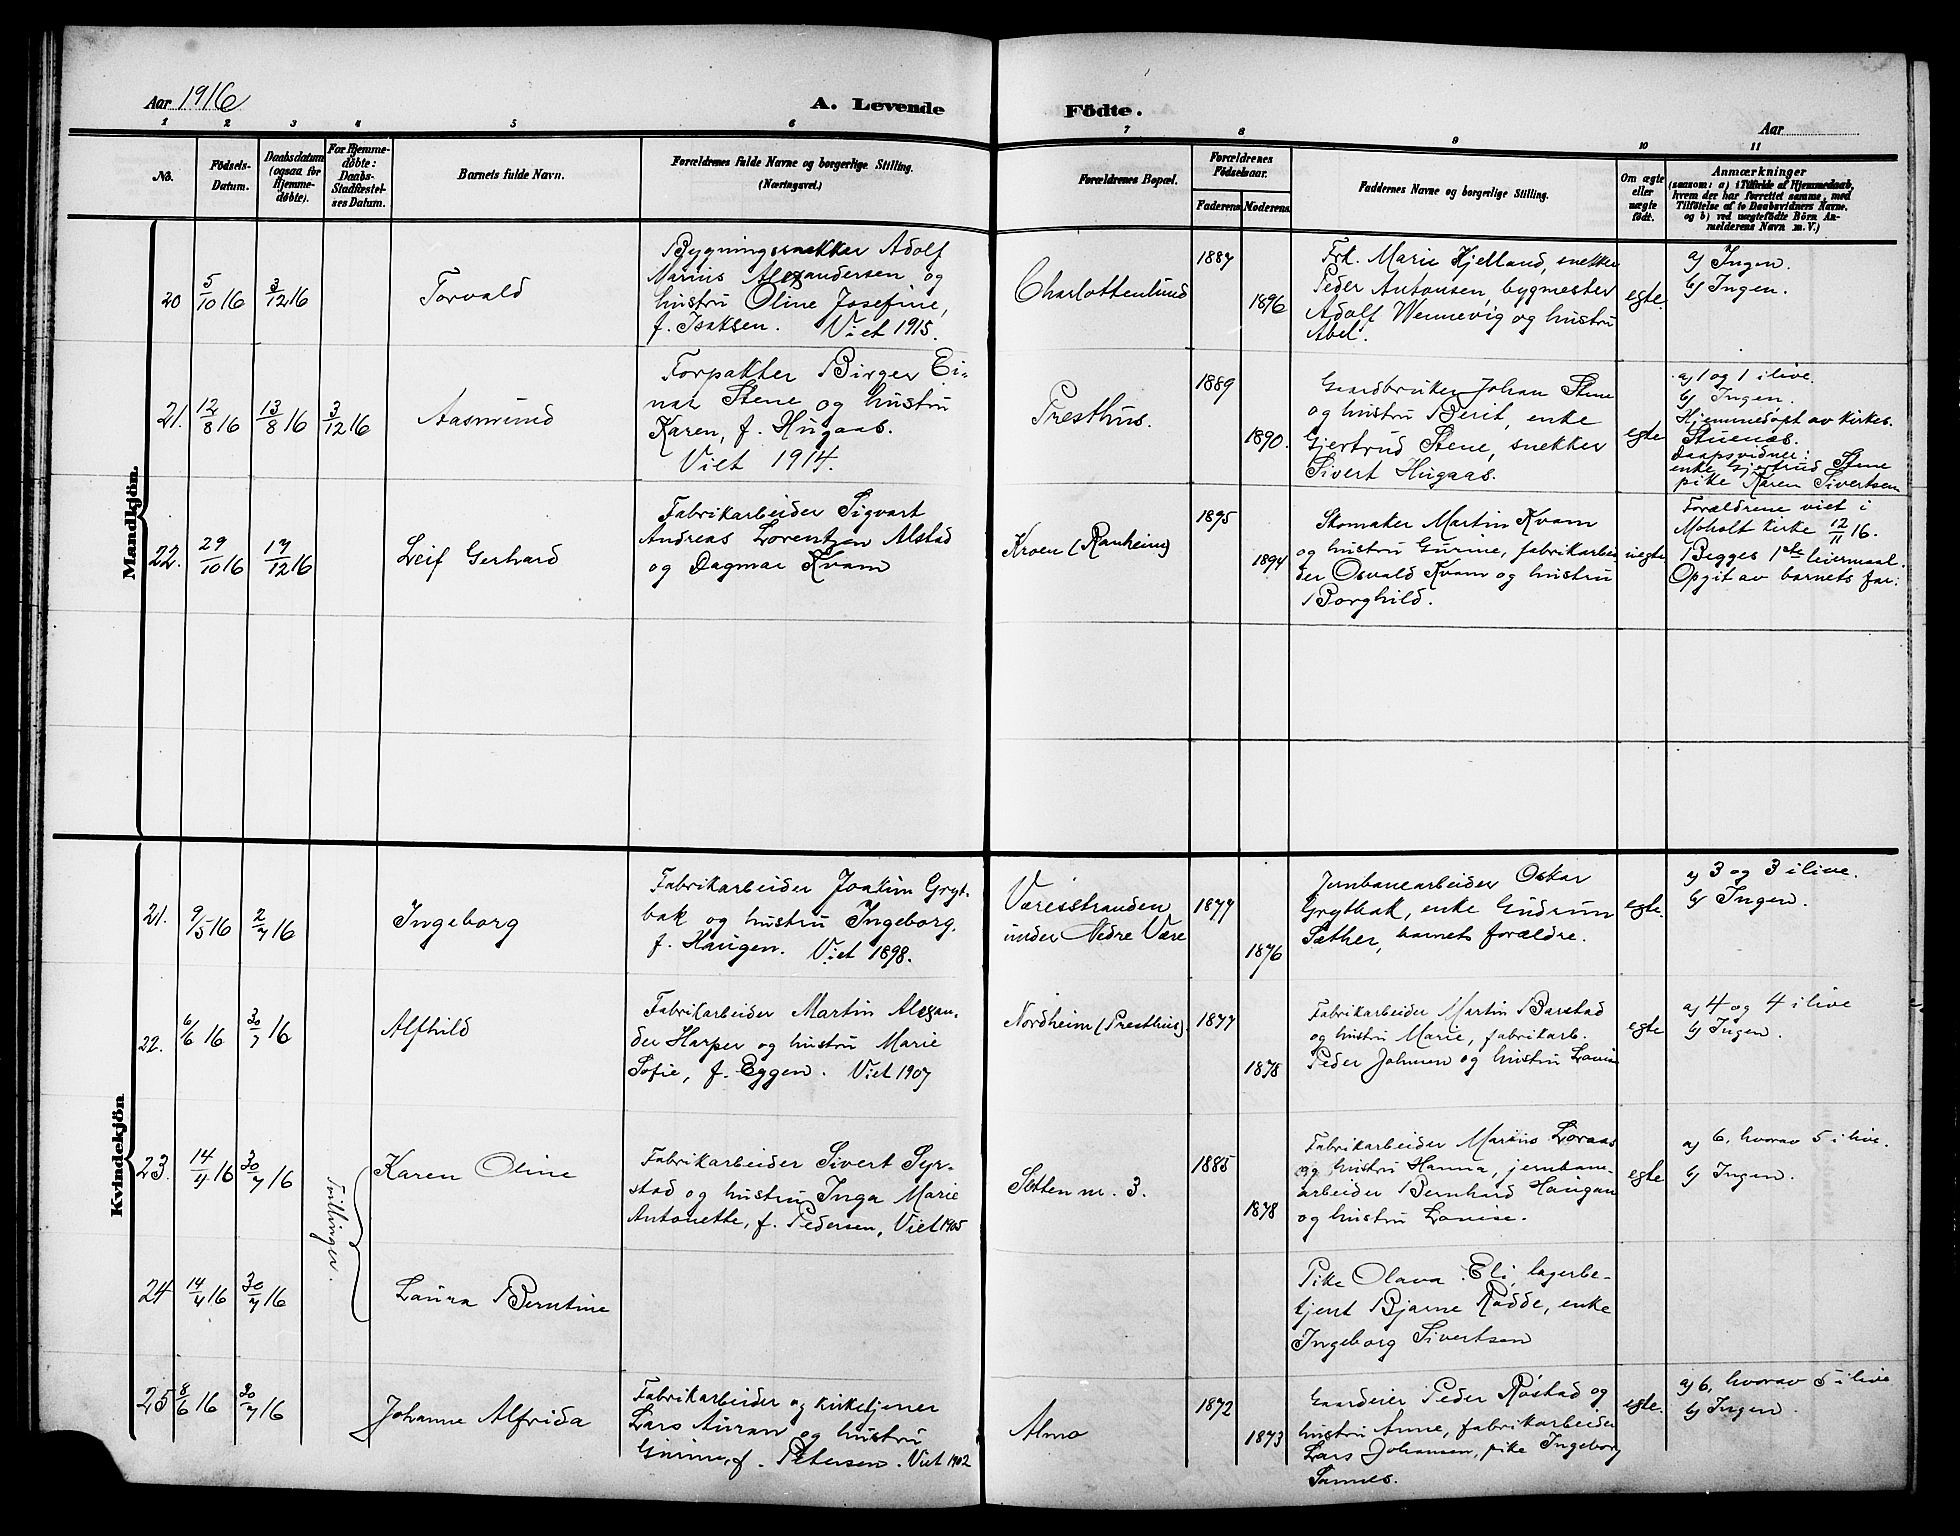 Aar 1916
A. Levende
Födte.
Aar
1 2 3 4 5 6 7 8 9 10 11
No.
Födsels-
Datum.
Daabsdatum
(ogsaa for
Hjemme-
døbte).
For Hjemme-
døbte:
Daabs-
Stadfæstel-
ses Datum.
Barnets fulde Navn.
Forældrenes fulde Navne og borgerlige Stilling.
(Næringsvei.)
Forældrenes Bopæl.
Forældrenes
Födselsaar.
Faderens.
Moderens.
Faddernes Navne og borgerlige Stilling.
Om ægte
eller
uægte
født.
Anmærkninger
(saasom: a) i Tilfælde af Hjemmedaab,
hvem der har forrettet samme, med
Tilføielse af to Daabsvidners Navne.
og b) ved uægtefødte Börn An-
melderens Navn m. V.)
Mandkjön.
20
5/10 16
3/12 16
Torvald
Bygningssnekker Adolf
Marius Alexandersen og
hustru Oline Josefine,
f. Isaksen. Viet 1915.
Charlottenlund
1887
1896
Frk. Marie Hjelland, snekker
Peder Antonsen, bygmester
Adolf Wennevig og hustru
Abel.
egte.
a) Ingen.
b) Ingen.
21.
12/8 16
13/8 16
3/12 16
Aasmund
Forpakter Birger Ei-
nar Stene og hustru
Karen, f. Hugaas.
Viet 1914.
Presthus.
1889
1890.
Gaardbruker Johan Stene
og hustru Berit, enke
Gjertrud Stene, snekker
Sivert Hugaas.
egte
a) 1 og 1 i live.
b) Ingen.
Hjemmedøpt av kirkes.
Stuenæs.
Daapsvidner:
enke Gjertrud Stene
pike Karen Sivertsen
22.
29/10 16
17/12 16
Leif Gerhard
Fabrikarbeider Sigvart
Andreas Lorentzen Alstad
og Dagmar Kvam
Kroen (Ranheim)
1895
1894
Skomaker Martin Kvam
og hustru Gurine, fabrikarbei-
der Osvald Kvam og hustru
Borghild.
uegte
Forældrene viet i
Moholt kirke 12/11 16.
Begges 1ste leiermaal.
Opgit av barnets far.
Kvindekjön
21.
9/5 16
2/7 16
Ingeborg
Fabrikarbeider Joakim Gryt-
bak og hustru Ingeborg,
f. Haugen. Viet 1898.
Væresstranden
under Nedre Være
1877
1876
Jernbanearbeider Oskar
Grytbak, enke Gudrun
Sæther, barnets forældre.
egte.
a) 3 og 3 i live.
b) Ingen.
22.
6/6 16
30/7 16
Alfhild
Fabrikarbeider Martin Alexan-
der Harper og hustru Marie
Sofie, f. Eggen. Viet 1907
Nordheim (Presthus).
1877
1878
Fabrikarbeider Martin Barstad
og hustru Marie, fabrikarb.
Peder Johnsen og hustru Lovise
egte
a) 4 og 4 i live
b) Ingen.
23.
14/4 16
30/7 16
Tvillinger.
Karen Oline
Fabrikarbeider Sivert Syr-
stad og hustru Inga Marie
Antonette, f. Pedersen, Viet 1905
Sletten nr. 3.
1885
1878
Fabrikarbeider Marius Loraas
og hustru Hanna, jernbane-
arbeider Bernhard Haugan
og hustru Louise.
egte
a) 6, hvorav 5 i live.
b) Ingen.
24
14/4 16
30/7 16
Laura Berntine
Pike Olava Eli, lagerbe-
tjent Bjarne Rødde, enke
Ingeborg Sivertsen
25
8/6 16
30/7 16
Johanne Alfrida
Fabrikarbeider og kirketjener
Lars Auran og hustru
Gurine, f. Petersen. Viet 1902
Almo
1872
1873
Gaardeier Peder Røstad og
hustru Anne, fabrikarbeider
Lars Johansen, pike Ingeborg
Sannes.
egte.
a) 6, hvorav 5 i live
b) Ingen.